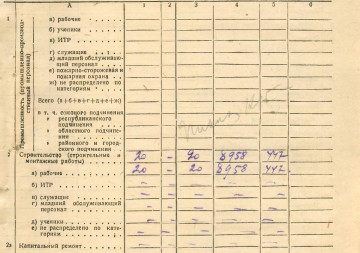 А 1 2 3 4 5 6
Промышленность (промышленно-производственный персонал)
1 а) рабочие
б) ученики
в) ИТР
г) служащие
д) младший обслуживающий персонал
е) пожарно-сторожевая и пожарная охрана
ж) не распределено по категориям
Всего (а+б+в+г+д+е+ж)
в т. ч. союзного подчинения
» республиканского подчинения
» областного подчинения
» районного и городского подчинения
2 Строительство (строительные и монтажные работы) 20 – 20 8958 447
а) рабочие 20 – 20 8958 447
б) ИТР – – – – –
в) служащие – – – – –
г) младший обслуживающий персонал – – – – –
д) ученики – – – – –
е) не распределено по категориям – – – – –
2а Капитальный ремонт – – – – –